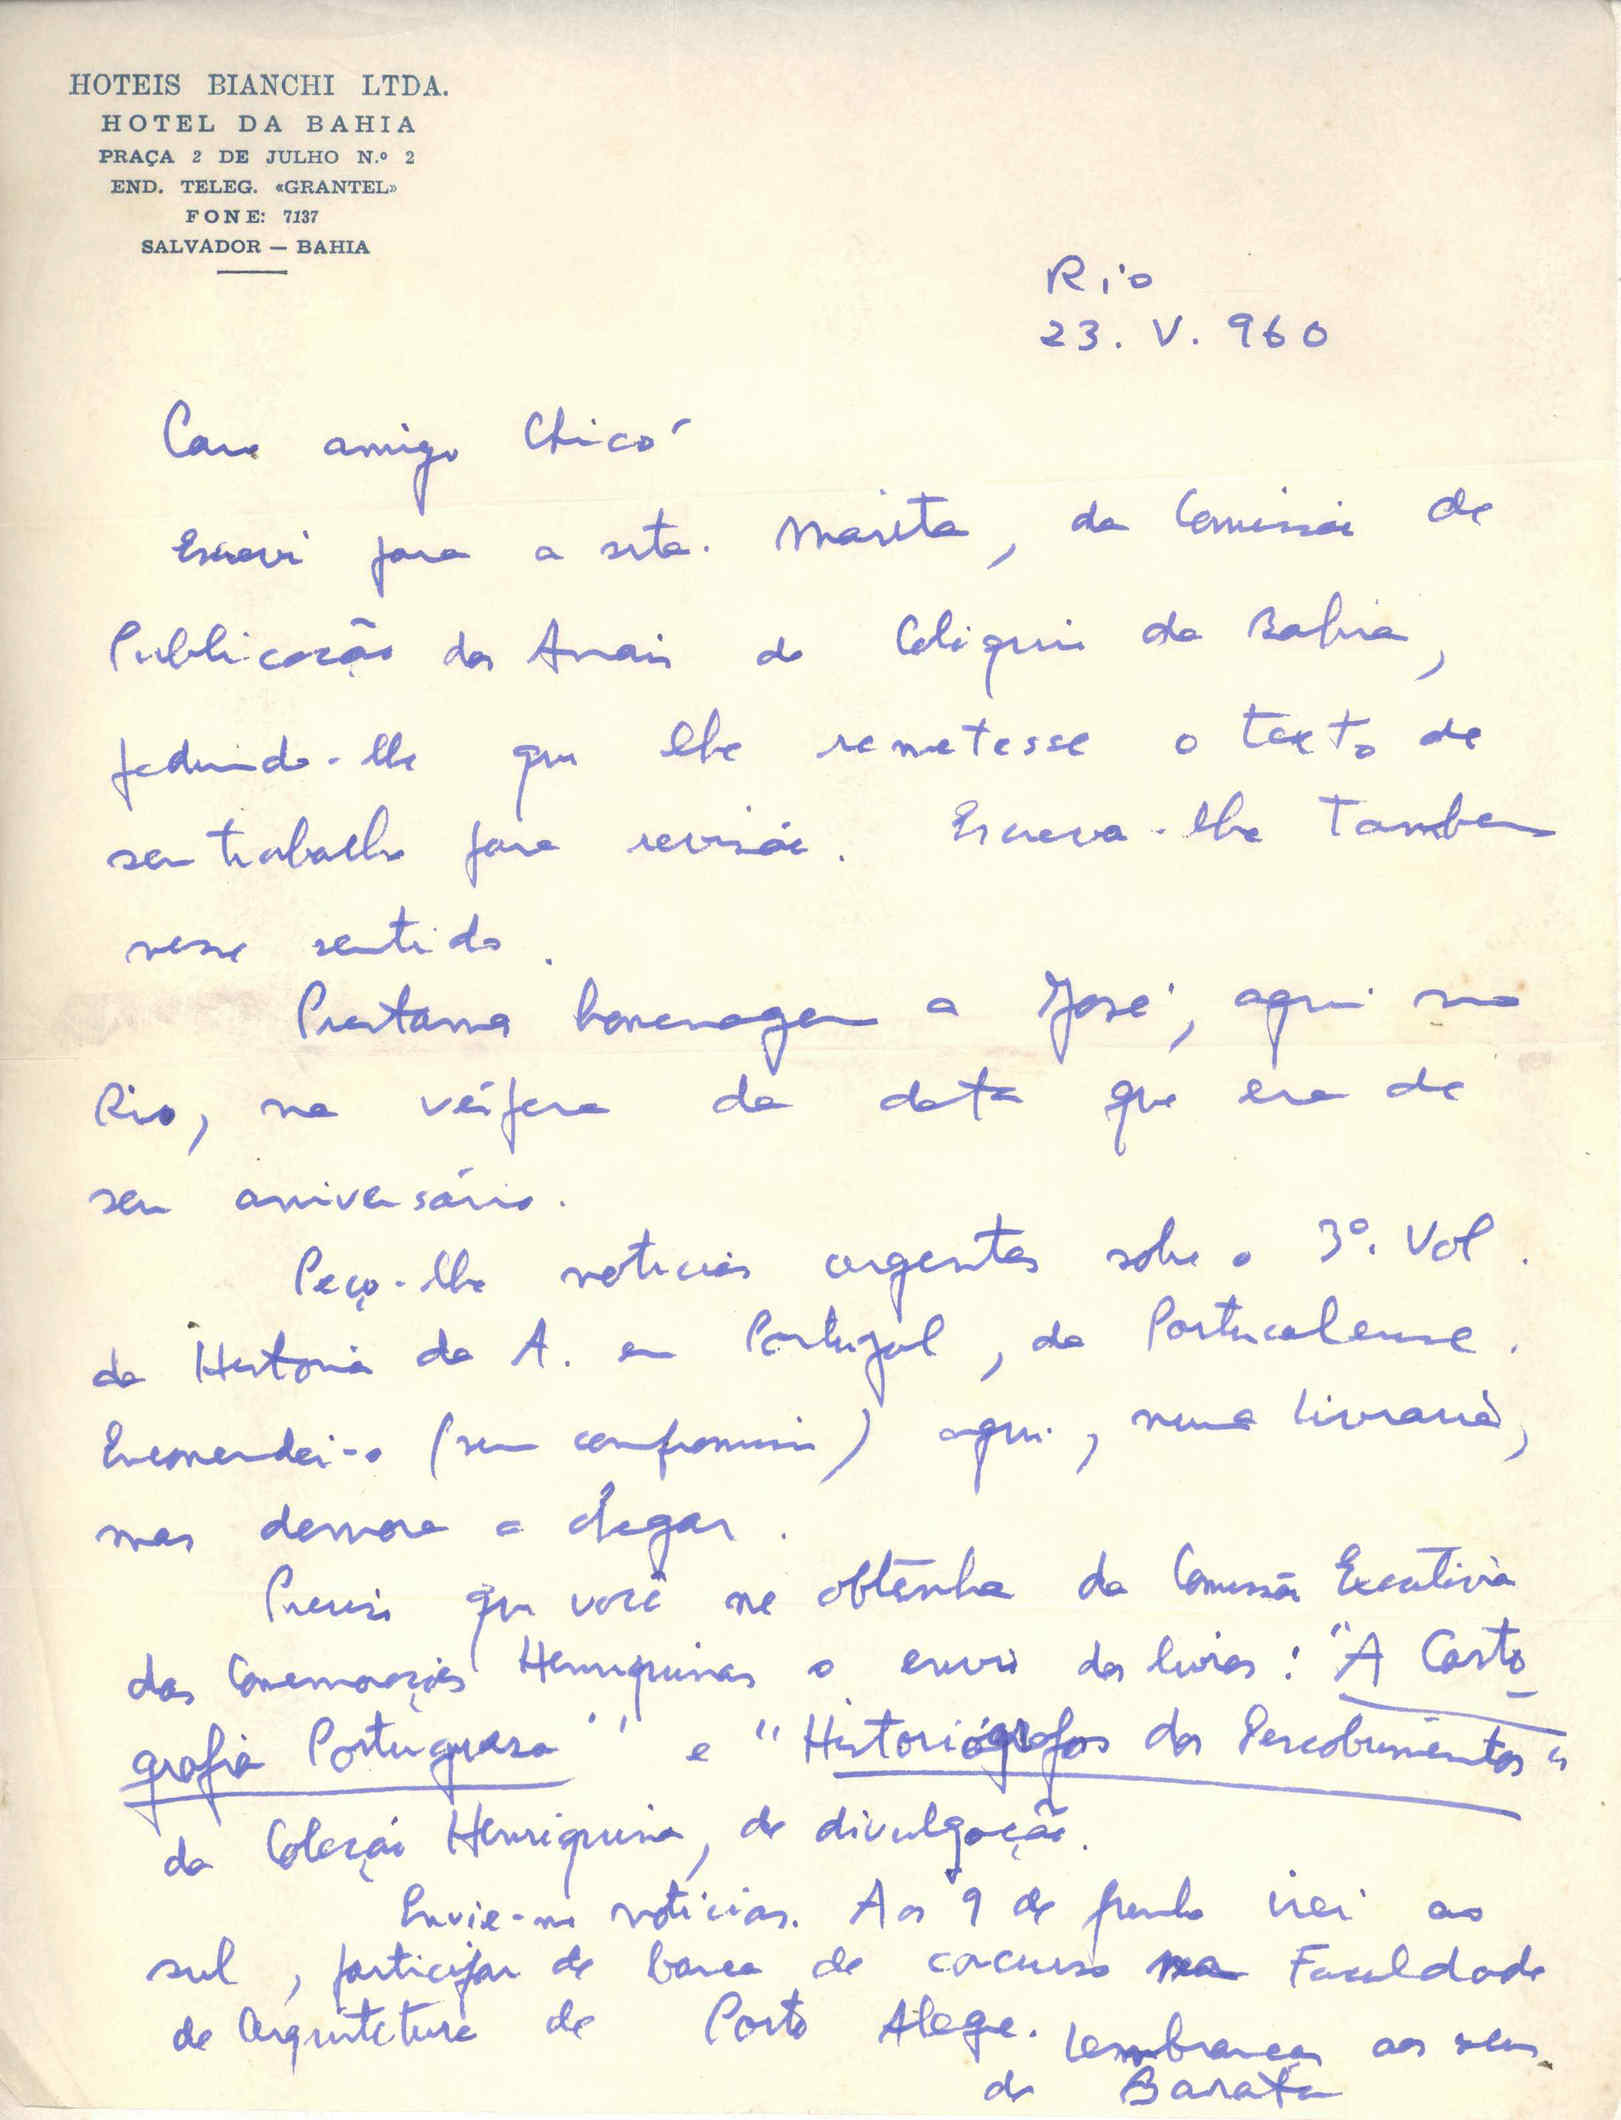 HOTEIS BIANCHI LTDA.
HOTEL DA BAHIA
PRAÇA 2 DE JULHO N.º 2
END. TELEG. «GRANTEL»
FONE: 7137
SALVADOR — BAHIA
Rio
23. V. 960
Caro amigo Chicó
Escrevi para a srta. Marieta, da Comissão de
Publicação dos Anais do Coloquio da Bahia,
pedindo-lhe que lhe remetesse o texto de
seu trabalho para revisão. Escreva-lhe tambem
nesse sentido.
Prestamos homenagem a José, aqui no
Rio, na véspera da data que era de
seu aniversário.
Peço-lhe noticias urgentes sobre o 3º. Vol.
da Historia da A. em Portugal, da Portucalense.
Encomendei-o (sem compromisso) aqui, numa livraria,
mas demora a chegar.
Preciso que você me obtenha da Comissão Executiva
das Comemorações Henriquinas o envio dos livros: "A Carto
grafia Portuguesa" e "Historiógrafos dos Descobrimentos"
da Coleção Henriquina, de divulgação.
Envie-me noticias. Aos 9 de junho irei ao
sul, participar de banca de concurso na Faculdade
de Arquitetura de Porto Alegre. Lembranças aos seus
do Barata